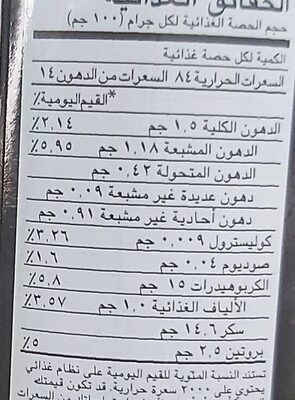 الحقائق الغذائية
حجم الحصة الغذائية لكل جرام (١٠٠ جم)
الكمية لكل حصة غذائية
السعرات الحرارية ٨٤ السعرات من الدهون ١٤
*القيم اليومية٪
الدهون الكلية ١.٥ جم ٢.١٤٪
الدهون المشبعة ١.١٨ جم ٥.٩٥٪
الدهون المتحولة ٠.٤٢ جم
دهون عديدة غير مشبعة ٠.٠٩ جم
دهون أحادية غير مشبعة ٠.٩١ جم
كوليسترول ٠.٠٠٩ جم ٣.٢٦٪
صوديوم ٠.٠٤ جم ١.٦٪
الكربوهيدرات ١٥ جم ٥.٨٪
الألياف الغذائية ١.٠ جم ٣.٥٧٪
سكر ١٤.٦ جم
بروتين ٢.٥ جم ٥٪
تستند النسبة المئوية للقيم اليومية على نظام غذائي
يحتوي على ٢٠٠٠ سعرة حرارية. قد تكون قيمتك
من السعرات